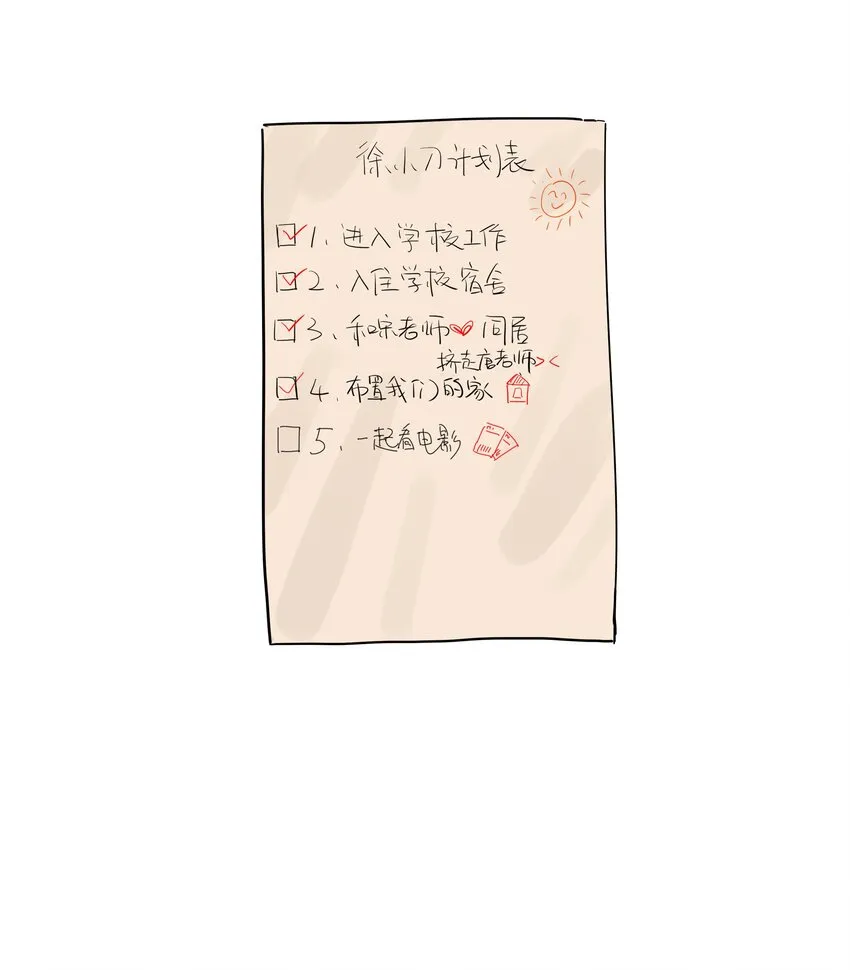 徐小刀计划表
1、进入学校工作
2、入住学校宿舍
3、和宋老师同居
挤走唐老师><
4、布置我们的家
5、一起看电影